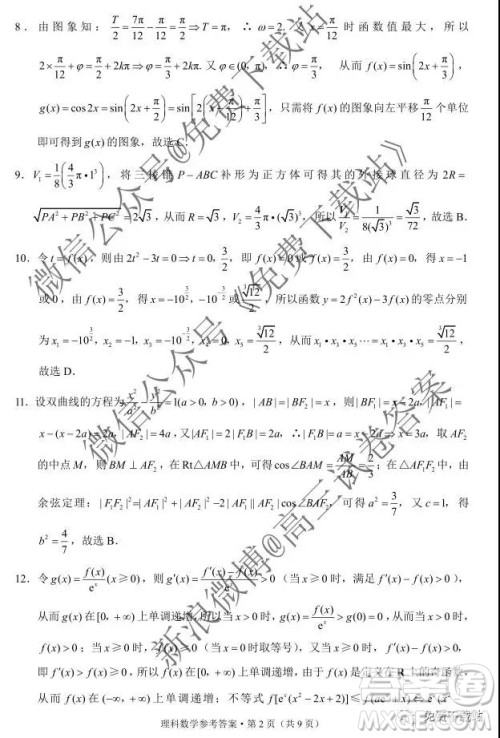 8．由图象知：T/2 = 7π/12 − π/12 = π/2 ⇒ T = π，∴ω = 2. 又 x = π/12 时函数值最大，所以
2×π/12 + φ = π/2 + 2kπ ⇒ φ = π/3 + 2kπ. 又 φ∈(0, π)，∴φ = π/3，从而 f(x) = sin(2x + π/3)，
g(x) = cos2x = sin(2x + π/2) = sin[2(x + π/12) + π/3]，只需将 f(x) 的图象向左平移 π/12 个单位
即可得到 g(x) 的图象，故选 C．
9．V₁ = 1/8(4/3 π•1³)，将三棱锥 P−ABC 补形为正方体可得其外接球直径为 2R =
√(PA² + PB² + PC²) = 2√3，从而 R = √3，V₂ = 4/3 π•(√3)³，所以 V₁/V₂ = 1/(8(√3)³) = √3/72，故选 B．
10．令 t = f(x)，则由 2t² − 3t = 0 ⇒ t = 0, 3/2，即 f(x) = 0 或 f(x) = 3/2，由 f(x) = 0，得 x = −1
故选 D．
11．设双曲线的方程为 x²/a² − y²/b² = 1(a > 0，b > 0)，|AB| = |BF₂| = x，则 |BF₁| = x − 2a，|AF₁| =
x − (x − 2a) = 2a，|AF₂| = 4a，又 |AF₁| = 2|F₁B|，∴|F₁B| = a = x − 2a ⇒ x = 3a，取 AF₂
的中点 M，则 BM ⊥ AF₂，在 Rt△AMB 中，可得 cos∠BAM = AM/AB = 2/3；在△AF₁F₂ 中，由
余弦定理：|F₁F₂|² = |AF₁|² + |AF₂|² − 2|AF₁||AF₂|cos∠BAF₂，可得 a² = 3/7，又 c = 1，得
b² = 4/7，故选 B．
12．令 g(x) = f(x)/eˣ (x≥0)，则 g′(x) = (f′(x) − f(x))/eˣ > 0（当 x > 0 时，满足 f′(x) > f(x)），
从而 g(x) 在 [0，+∞) 上单调递增，所以当 x > 0 时，g(x) = f(x)/eˣ > g(0) = 0，从而当 x > 0 时，
f(x) > 0；当 x≥0 时，f(x)≥0（当 x = 0 时取等号），又当 x≥0 时，f′(x) − f(x) > 0，
即 f′(x) > f(x) > 0，所以 f(x) 在 [0，+∞) 上单调递增，由于 f(x) 是定义在 R 上的奇函数，
从而 f(x) 在 (−∞，+∞) 上单调递增；不等式 f[eˣ(x² − 2x + 2)] <
理科数学参考答案·第 2 页（共 9 页）
微信公众号@免费下载站
微信公众号《免费下载站》
新浪微博@高三试卷答案